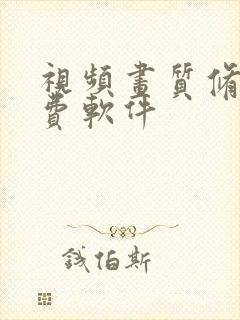 視頻畫質脩
費軟件
錢伯斯